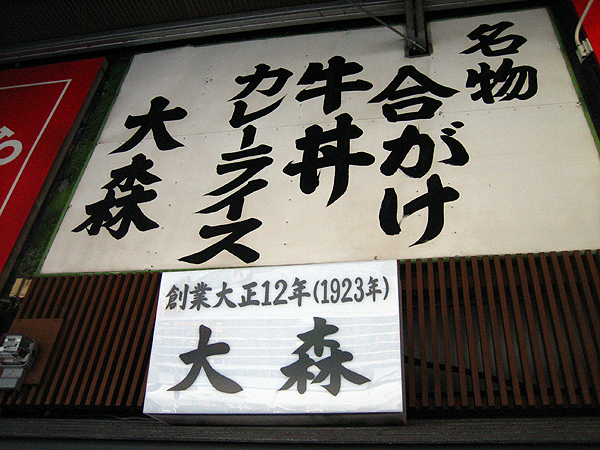 名物
合がけ
牛丼
カレーライス
大森
創業大正12年(1923年)
大森
ろ